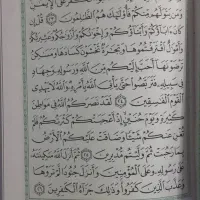 وَمَن يَتَوَلَّهُم مِّنكُمْ فَأُو۟لَٰٓئِكَ هُمُ ٱلظَّٰلِمُونَ
كَانَ ءَابَآؤُكُمْ وَأَبْنَآؤُكُمْ وَإِخْوَٰنُكُمْ وَأَزْوَٰجُكُمْ وَعَشِيرَتُكُمْ
وَأَمْوَٰلٌ ٱقْتَرَفْتُمُوهَا وَتِجَٰرَةٌ تَخْشَوْنَ كَسَادَهَا وَمَسَٰكِنُ
تَرْضَوْنَهَآ أَحَبَّ إِلَيْكُم مِّنَ ٱللَّهِ وَرَسُولِهِۦ وَجِهَادٍ
فِى سَبِيلِهِۦ فَتَرَبَّصُوا۟ حَتَّىٰ يَأْتِىَ ٱللَّهُ بِأَمْرِهِۦ وَٱللَّهُ لَا يَهْدِى
ٱلْقَوْمَ ٱلْفَٰسِقِينَ ٢٤ لَقَدْ نَصَرَكُمُ ٱللَّهُ فِى مَوَاطِنَ
كَثِيرَةٍ وَيَوْمَ حُنَيْنٍ إِذْ أَعْجَبَتْكُمْ كَثْرَتُكُمْ فَلَمْ
تُغْنِ عَنكُمْ شَيْـًٔا وَضَاقَتْ عَلَيْكُمُ ٱلْأَرْضُ
بِمَا رَحُبَتْ ثُمَّ وَلَّيْتُم مُّدْبِرِينَ ٢٥ ثُمَّ أَنزَلَ ٱللَّهُ سَكِينَتَهُۥ
عَلَىٰ رَسُولِهِۦ وَعَلَى ٱلْمُؤْمِنِينَ وَأَنزَلَ جُنُودًا لَّمْ تَرَوْهَا
وَعَذَّبَ ٱلَّذِينَ كَفَرُوا۟ وَذَٰلِكَ جَزَآءُ ٱلْكَٰفِرِينَ ٢٦